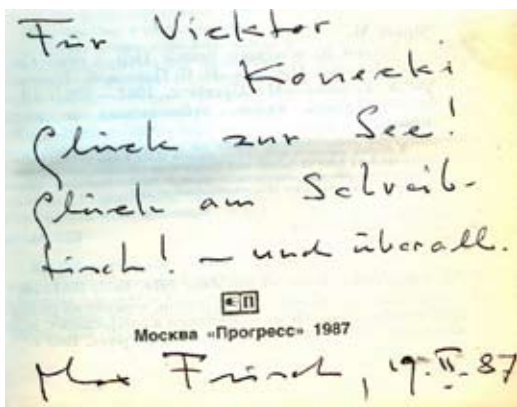 Für Vicktor
Konecki
Glück zur See!
Glück am Schreib-
tisch! – und überall.
Москва «Прогресс» 1987
Max Frisch, 19.II.87